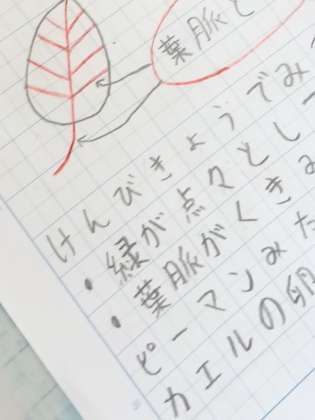 葉脈と
けんびきょうでみ
・緑が点々とし
・葉脈がくきみ
ピーマンみた
カエルの卵